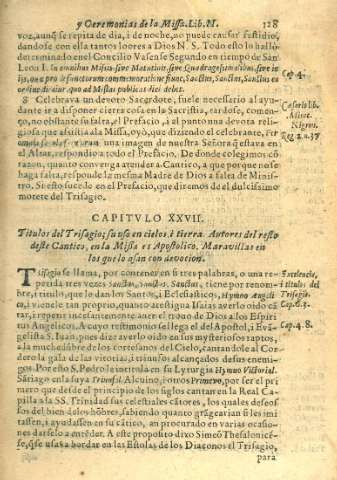 y Ceremonias de la Missa. Lib. II. 128
voz, aunq̃ se repita de dia, i de noche, no puede causar fastidio,
dandose con ella tantos loores a Dios N. S. Todo esto lo halló
determinado en el Concilio Vasense Segundo en tiempo de San
Leon I. In omnibus Missis sive Matutinis, sive quadragesimalibus, sive in
ijs, quæ pro defunctorum commemoratione fiunt, Sactus, Sanctus, Sanctus, eo
ordine dicatur quo ad Missas publicas dici debet. Cap. 4.
8 Celebrava un devoto Sacerdote, fuele necessario al ayu-
dante ir a disponer cierta cosa en la Sacristia, tardose, comẽ-
çò, no obstante su falta, el Prefacio, i al punto una devota reli-
giosa que asistia a la Missa, oyò, que diziendo el celebrante, Per
omnia una imagen de nuestra Señora q̃ estava en
el Altar, respondio a todo el Prefacio. De donde colegimos cõ
razon, quanto conuenga atender a Cantico, a que porque no se
haga falta, responde la mesma Madre de Dios a falta de Minis-
tro. Si esto sucedo en el Prefacio, que diremos de el dulcissimo
motete del Trisagio.
CAPITVLO XXVII.
Titulos del Trisagio; su uso en cielos, i tierra. Autores del resto
deste Cantico, en la Missa es Apostolico. Maravillas en
los que lo usan con devocion.
Trisagio se llama, por contener en si tres palabras, o una re-
petida tres vezes Sanctus, Sanctus, Sanctus, tiene por renom-
bre, i titulo, que le dan los Santos, i Eclesiasticos, Hymno Angeli
co, i vienele tan proprio, quanto atestigua Isaias averlo oido cã-
tar, i repetir incesantemente a los Espiritus
Angelicos. A cuyo testimonio se llega el del Apostol, i Evã-
gelista S. Iuan, pues diz averlo oido en sus misteriosos raptos,
a la muchedũbre de los cortesanos del Cielo, cantandole al Cor-
dero la gala de las vitorias, i triunfos alcançados de sus enemi-
gos. Por esto S. Pedro le intitula en su Lyturgia Hymno Vittorial.
Sãtiago en la suya Triunfal. Alcuino, i otros Primero, por ser el pri
mero que desde el principio de los siglos cantan en la Real Ca-
pilla a la SS. Trinidad sus celestiales cãtores, los quales deseo-
sos del bien de los hõbres, sabiendo quanto grãgearian si les imi
tassen, i ayudassen en su cãtico, an procurado en varias ocasio-
nes darselo a entẽder. A este proposito dixo Simeõ Thesalonicé-
se, q̃ se usava bordar en las Estolas de los Diaconos el Trisagio,
para
Excelencia,
i titulos del
Trisagio.
Cap. 6. 3.
Cap. 4. 8.